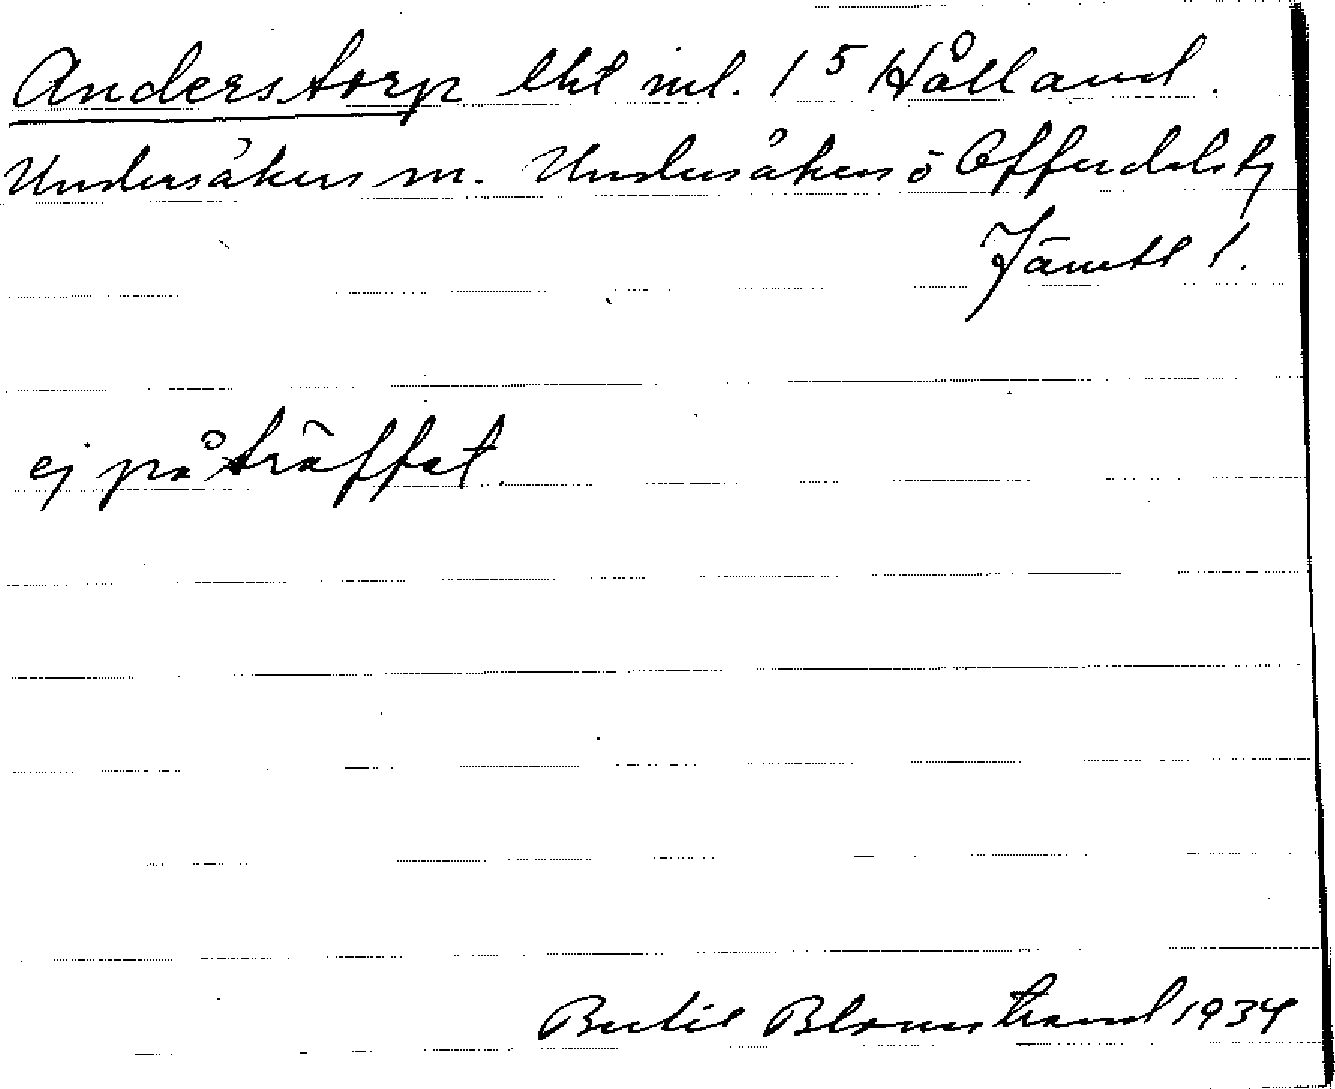 Anderstorp lht inl. 1⁵ Hålland.
Undersåkers m. Undersåkers o Offerdals tg
Jämtl l.
ej påträffat.
Bertil Blomstrand 1934